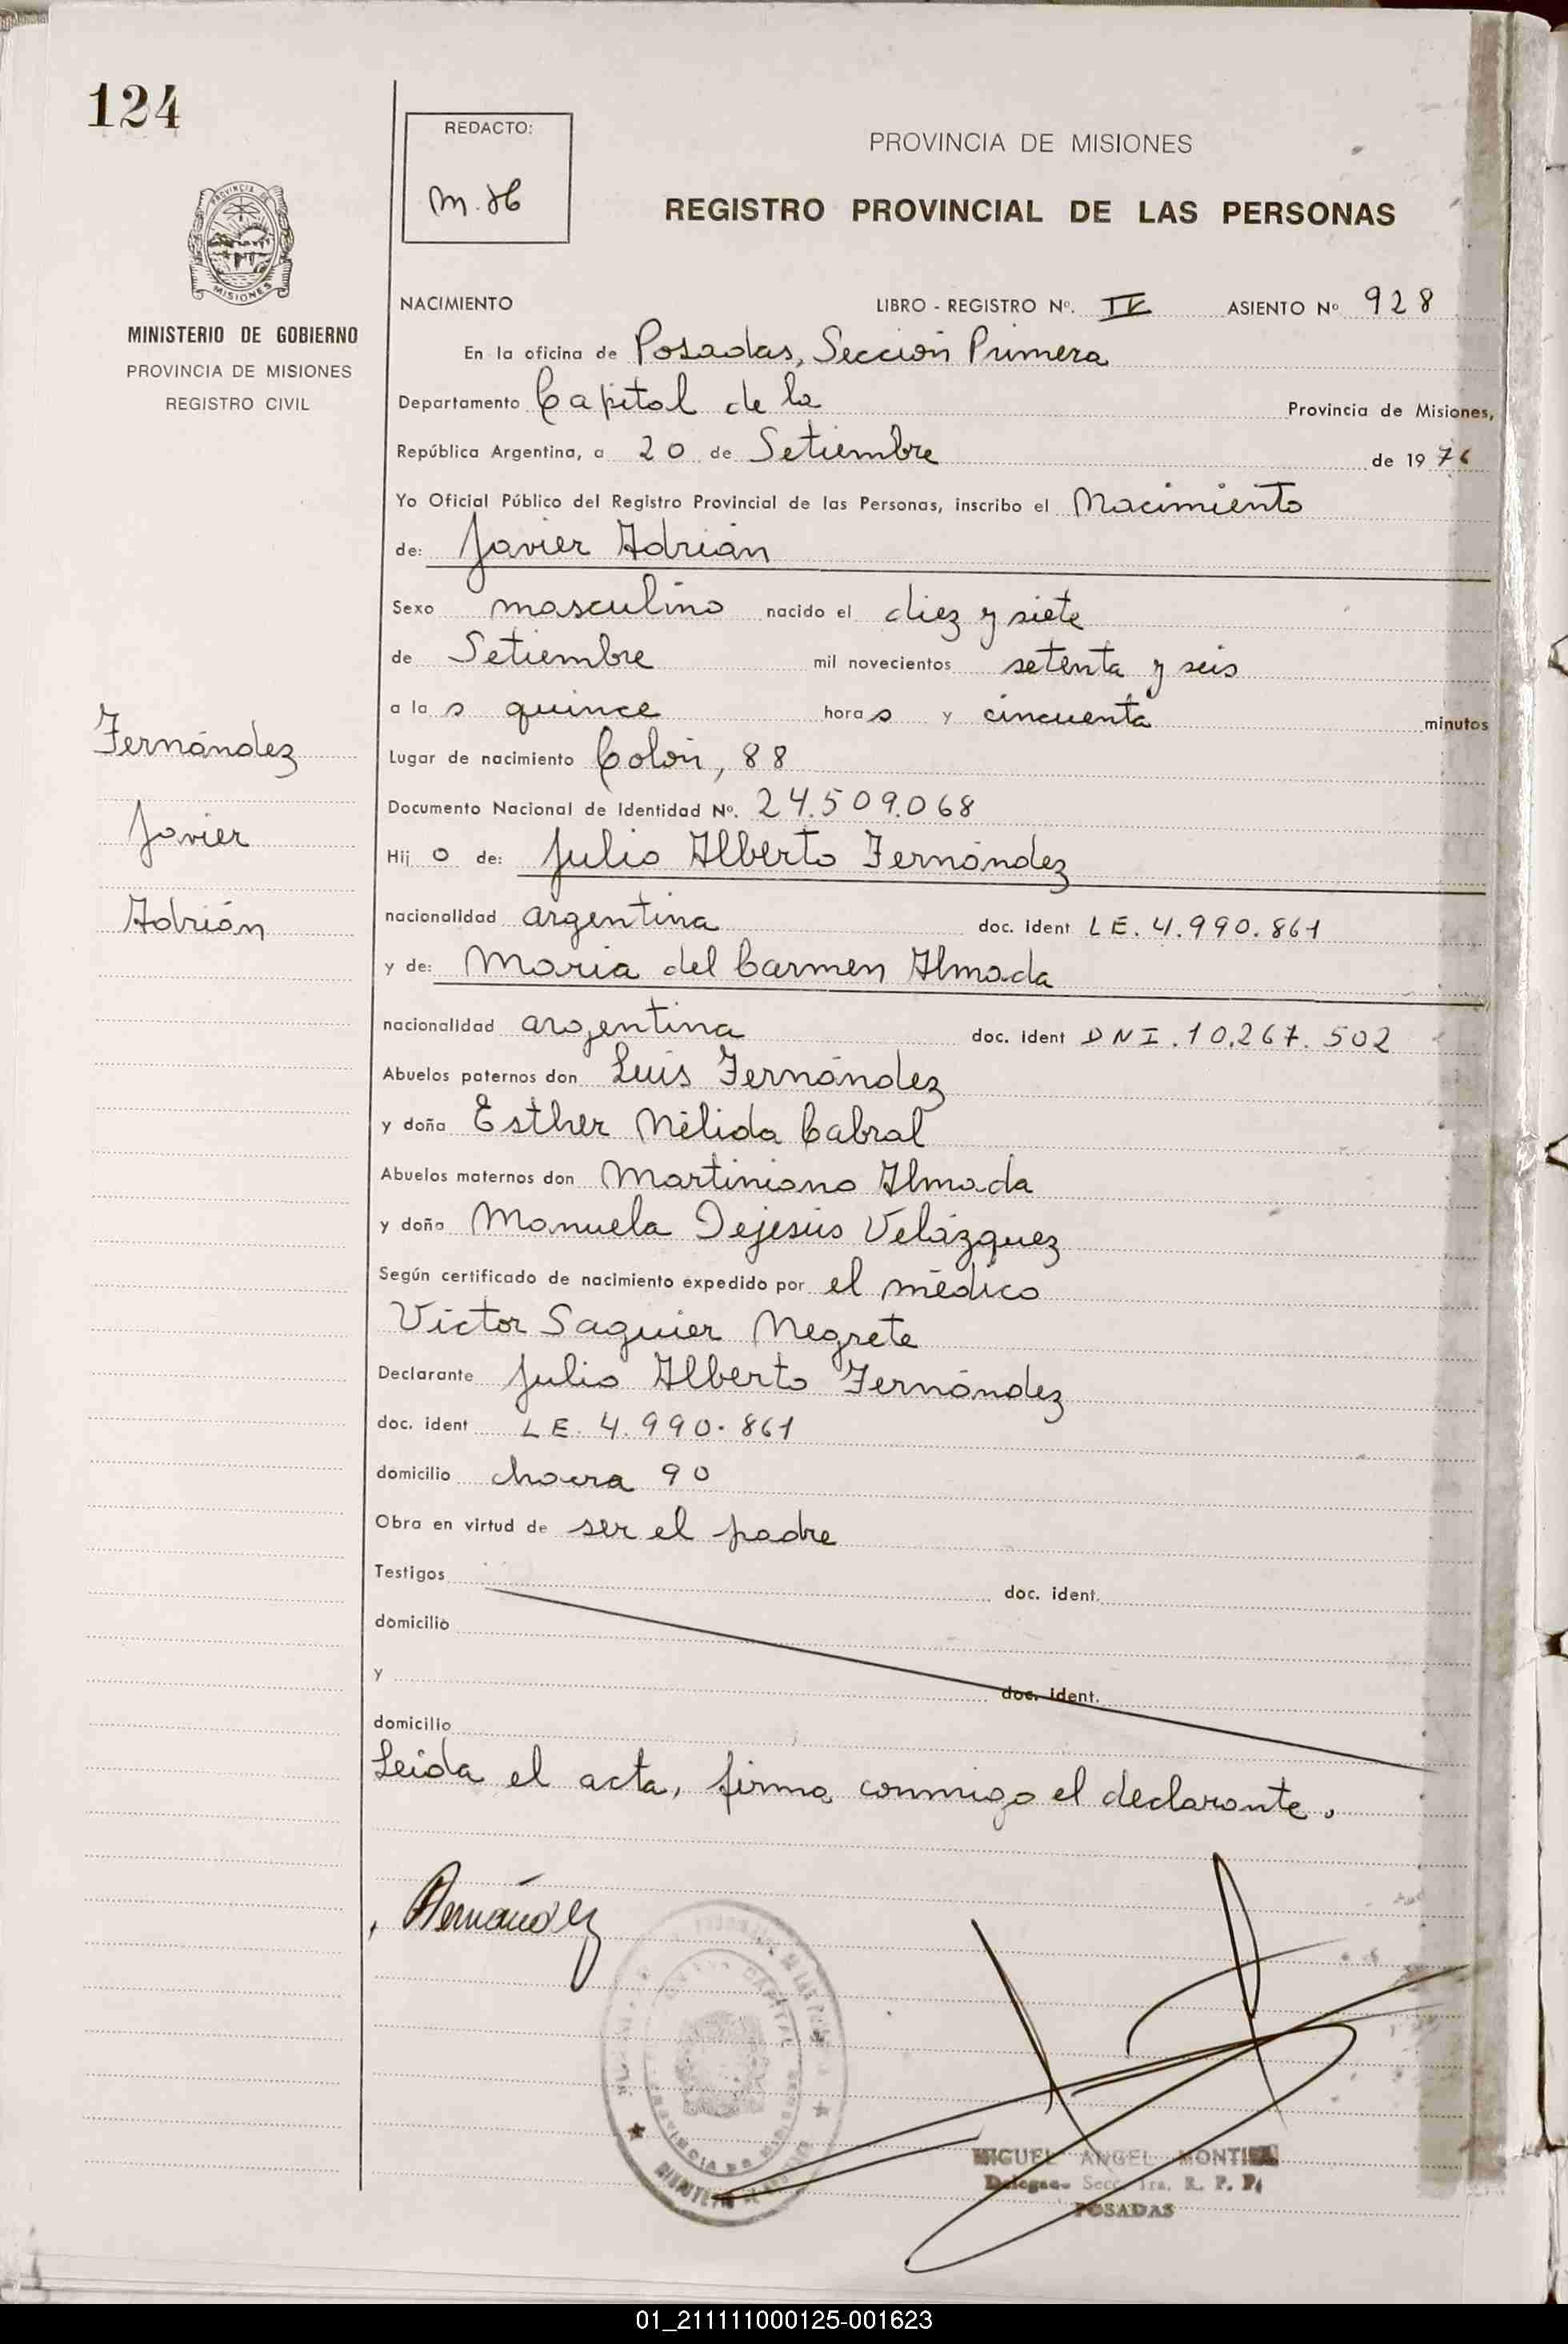 124
REDACTO:
M.H
PROVINCIA DE MISIONES
REGISTRO PROVINCIAL DE LAS PERSONAS
PROVINCIA DE
MISIONES
MINISTERIO DE GOBIERNO
PROVINCIA DE MISIONES
REGISTRO CIVIL
NACIMIENTO LIBRO - REGISTRO Nº. IV ASIENTO Nº 928
En la oficina de Posadas, Sección Primera
Departamento Capital de la Provincia de Misiones,
República Argentina, a 20 de Setiembre de 1976
Yo Oficial Público del Registro Provincial de las Personas, inscribo el Nacimiento
de: Javier Adrián
Sexo masculino nacido el diez y siete
de Setiembre mil novecientos setenta y seis
a las quince horas y cincuenta minutos
Lugar de nacimiento Colón, 88
Documento Nacional de Identidad Nº. 24.509.068
Hijo de: Julio Alberto Fernández
nacionalidad argentina doc. ident LE. 4.990.861
y de: María del Carmen Almada
nacionalidad argentina doc. ident DNI. 10.267.502
Abuelos paternos don Luis Fernández
y doña Esther Nélida Cabral
Abuelos maternos don Martiniano Almada
y doña Manuela Dejesús Velázquez
Según certificado de nacimiento expedido por el médico
Víctor Saguier Negrete
Declarante Julio Alberto Fernández
doc. ident LE. 4.990.861
domicilio chacra 90
Obra en virtud de ser el padre
Testigos doc. ident.
domicilio
y doc. ident.
domicilio
Leída el acta, firma conmigo el declarante.
Fernández
Javier
Adrián
Fernández
MIGUEL ANGEL
Secc. 1ra. R. P. P.
POSADAS
01_211111000125-001623